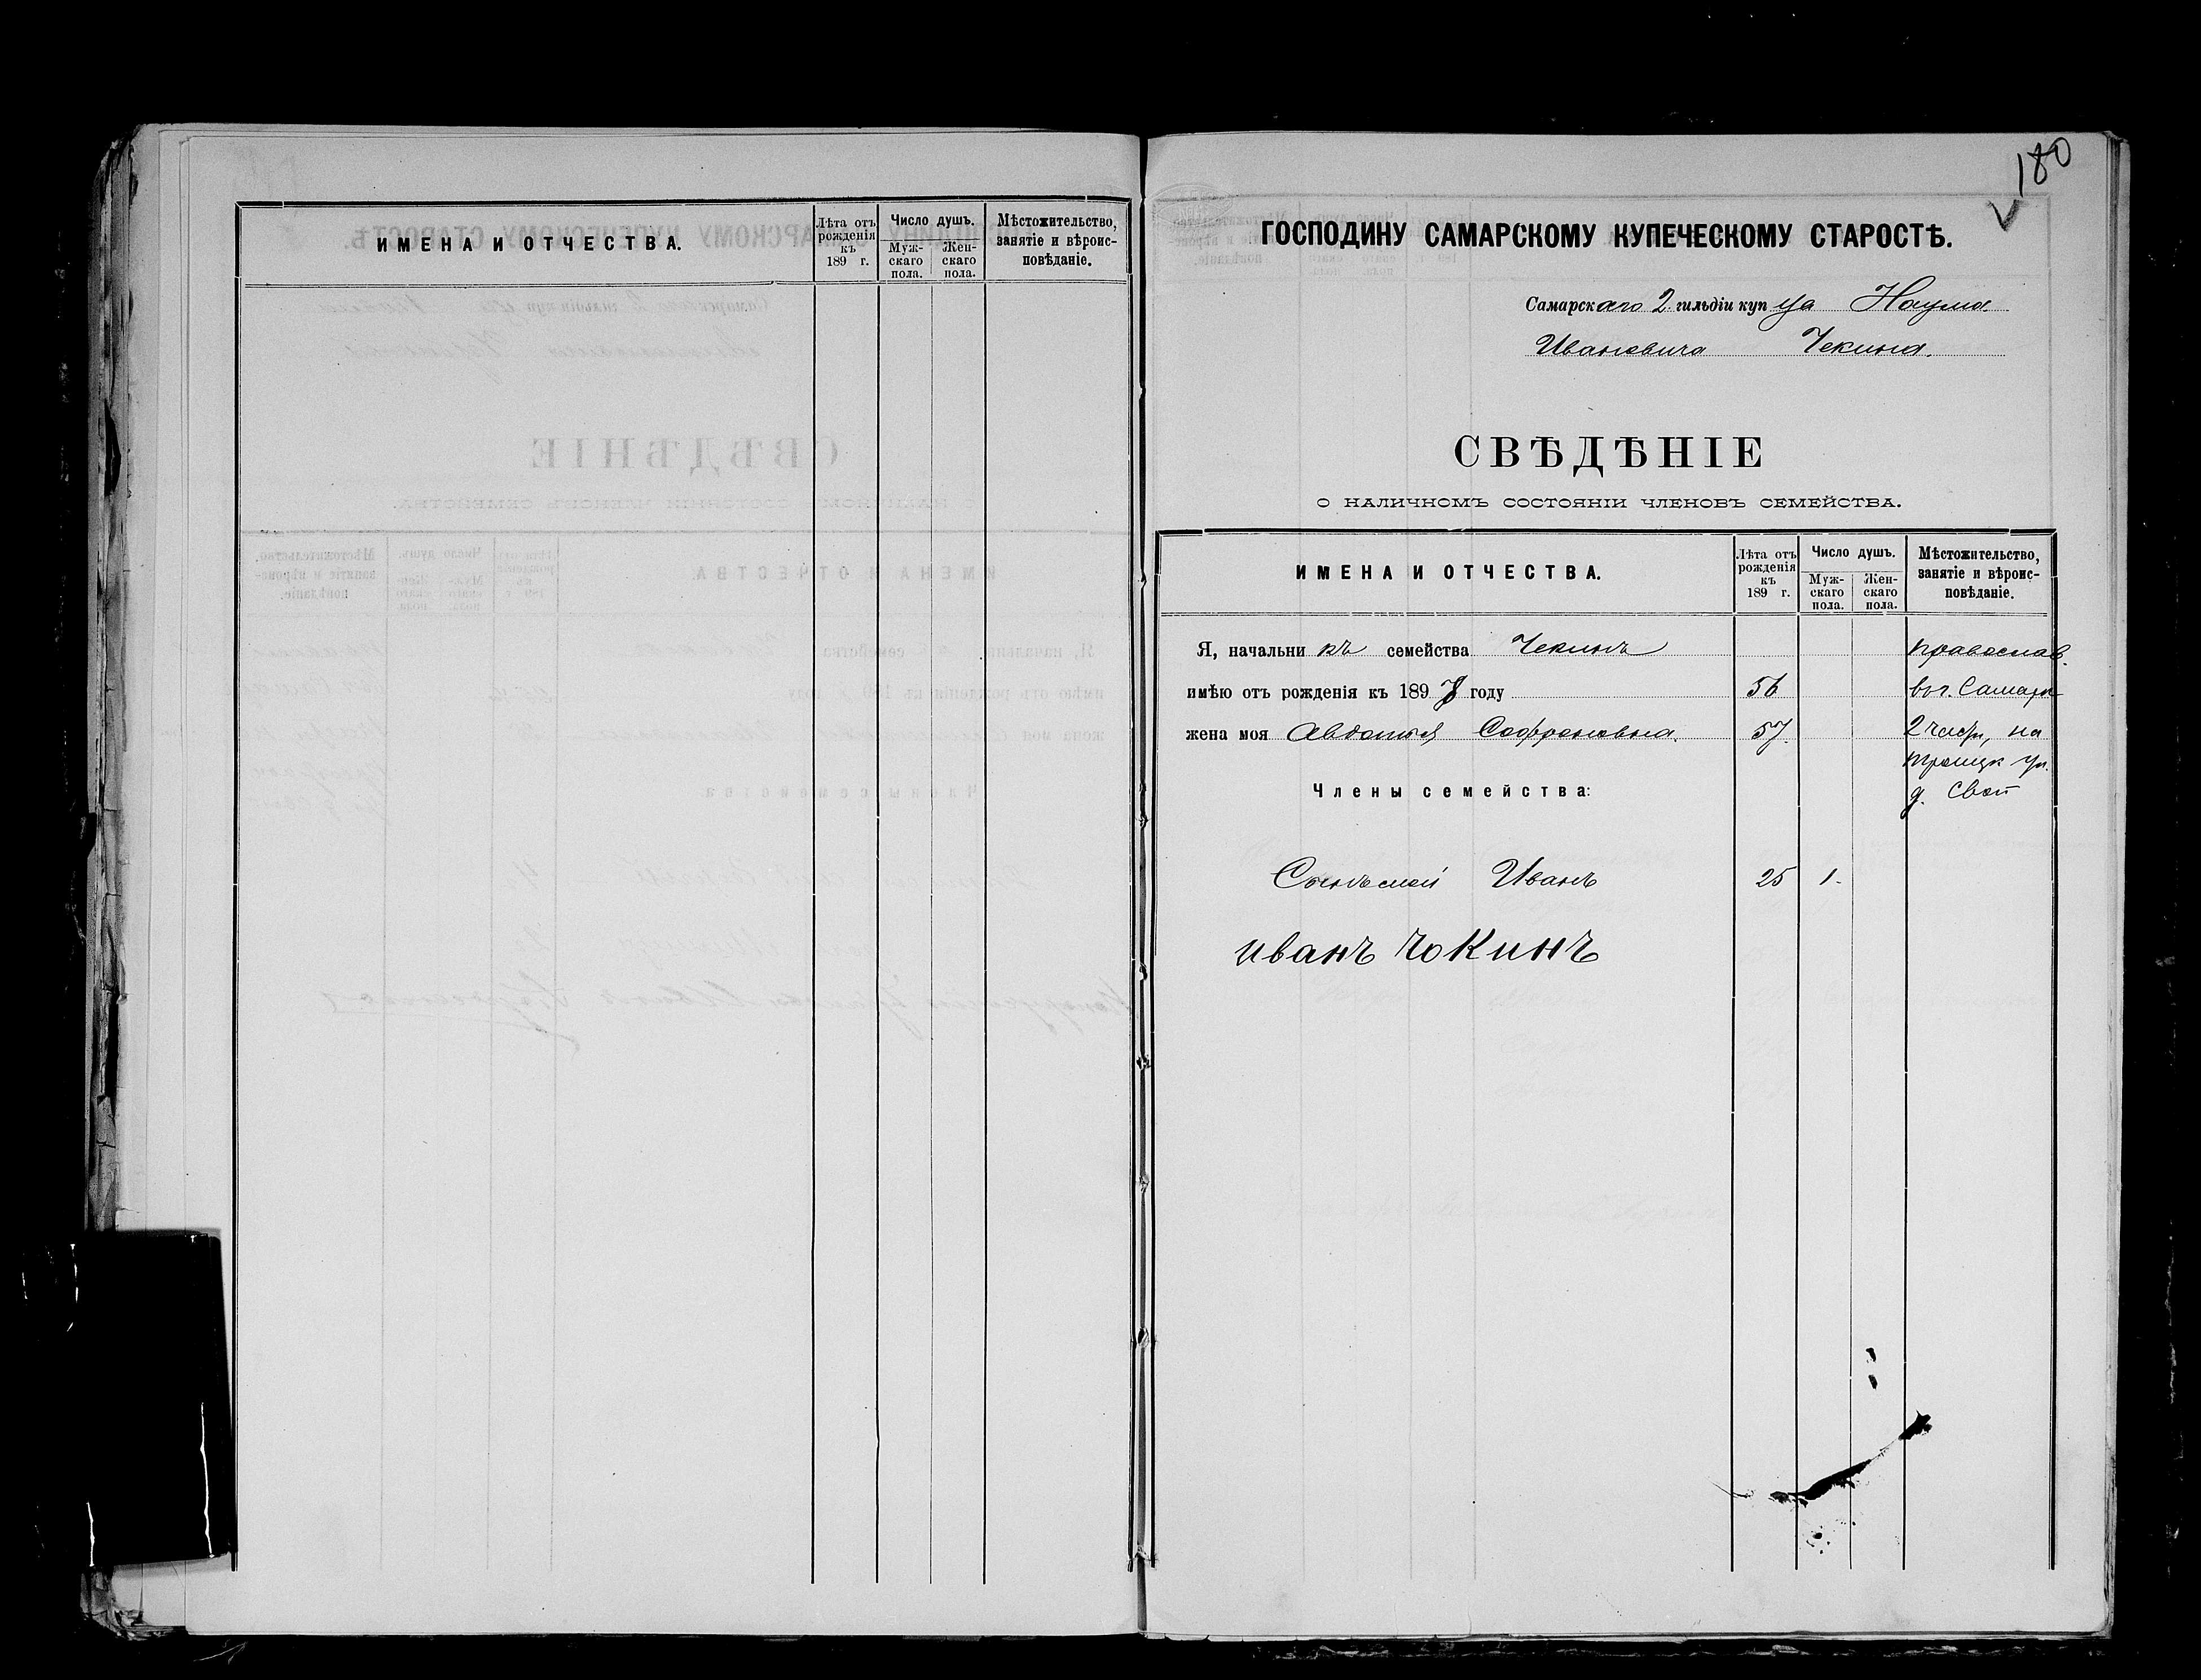 ИМЕНА И ОТЧЕСТВА.
Лѣта отъ рожденія къ 189 г.
Число душъ.
Муж-скаго пола.
Жен-скаго пола.
Мѣстожительство, занятіе и вѣроис-повѣданіе.
180
ГОСПОДИНУ САМАРСКОМУ КУПЕЧЕСКОМУ СТАРОСТѢ.
Самарскаго 2 гильдіи купца Наума
Ивановича Чекина.
СВѢДѢНІЕ
О НАЛИЧНОМЪ СОСТОЯНІИ ЧЛЕНОВЪ СЕМЕЙСТВА.
ИМЕНА И ОТЧЕСТВА.
Лѣта отъ рожденія къ 189 г.
Число душъ.
Муж-скаго пола.
Жен-скаго пола.
Мѣстожительство, занятіе и вѣроис-повѣданіе.
Я, начальникъ семейства Чекинъ православ.
имѣю отъ рожденія къ 1898 году 56 въ г. Самарѣ
жена моя Авдотья Софроновна. 57. 2 части, на
троицк ул.
Члены семейства: д. свой
Сынъ мой Иванъ 25 1.
иванъ чокинъ